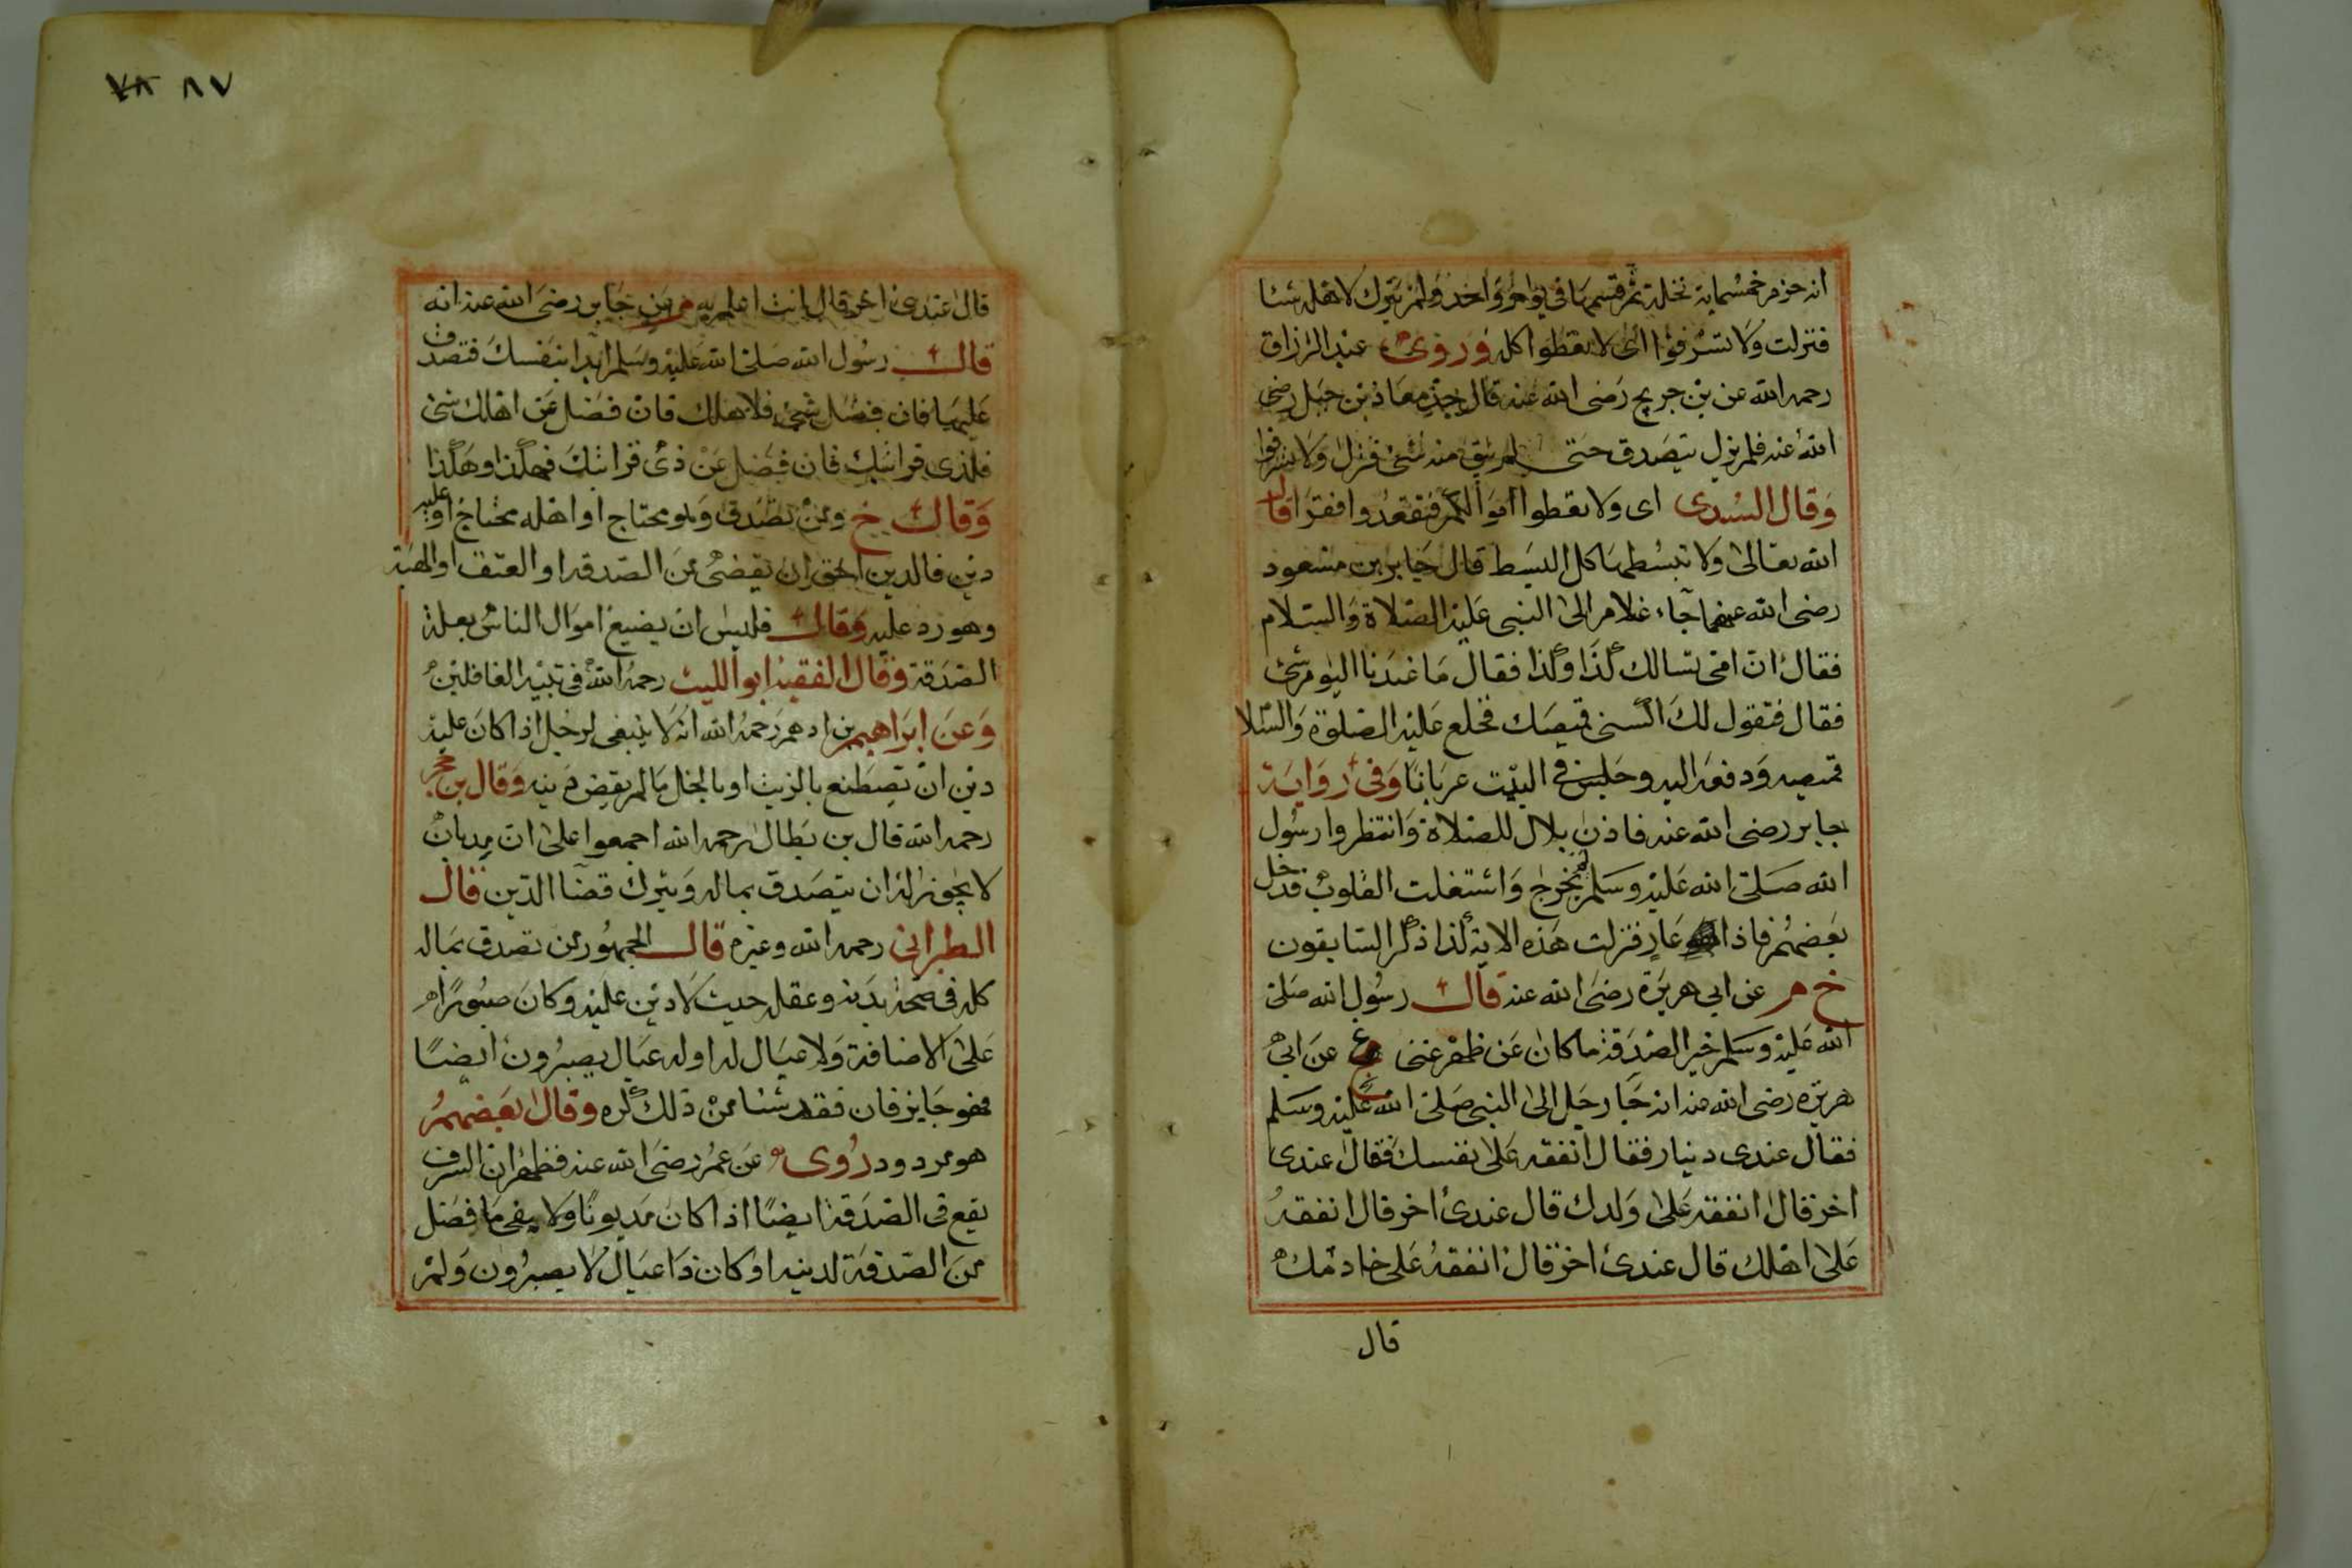 انه خرم خمسماية نخلة ثم قسمها في يوم واحد ولم يترك لاهله شئا
فنزلت ولا تسرفوا اى لا تعطوا كله وروى عبد الرزاق
رحمه الله عن بن جريج رضى الله عنه قال جذ معاذ بن جبل رضى
الله عنه فلم يزل يتصدق حتى لم يبق منه شئ فنزل ولا تسرفوا
وقال السدى اى ولا تعطوا اموالكم فتقعدوا فقرا قال
الله تعالى ولا تبسطها كل البسط قال جابر بن مسعود
رضى الله عنهما جآء غلام الى النبى عليه الصلاة والسلام
فقال ان امى تسالك كذا وكذا فقال ما عندنا اليوم شئ
فقال فتقول لك اكسنى قميصك فخلع عليه الصلوة والسلا
قميصه ودفعه اليه وجلس فى البيت عريانا وفى رواية
جابر رضى الله عنه فاذن بلال للصلاة وانتظروا رسول
الله صلى الله عليه وسلم يخرج واشتغلت القلوب فدخل
بعضهم فاذا هو عار فنزلت هذه الاية كذا ذكر السابقون
خ م عن ابي هريرة رضى الله عنه قال رسول الله صلى
الله عليه وسلم خير الصدقة ما كان عن ظهر غنى عن ابى
هريره رضى الله عنه انه جا رجل الى النبى صلى الله عليه وسلم
فقال عندى دينار فقال انفقه على نفسك فقال عندى
اخر قال انفقه على ولدك قال عندى اخر قال انفقه
على اهلك قال عندى اخر قال انفقه على خادمك
قال
٧٨ ٨٧
قال عندى اخر قال انت اعلم به م عن جابر رضى الله عنه انه
قال رسول الله صلى الله عليه وسلم ابدا بنفسك فتصدق
عليها فان فضل شئ فلاهلك فان فضل عن اهلك شئ
فلذى قرابتك فان فضل عن ذى قرابتك فهكذا وهكذا
وقال خ ومن تصدق وهو محتاج او اهله محتاج او عليه
دين فالدين احق ان يقضى من الصدقه او العتق او الهبة
وهو رد عليه وقال فليس ان يضيع اموال الناس بعلة
الصدقة وقال الفقيه ابو الليث رحمه الله فى تنبيه الغافلين
وعن ابراهيم بن ادهم رحمه الله انه لا ينبغى لرجل اذا كان عليه
دين ان يصطنع بالزيت او بالخل ما لم يقض دينه وقال بن حجر
رحمه الله قال بن بطال رحمه الله اجمعوا على ان مديان
لا يجوز له ان يتصدق بماله ويترك قضا الدين قال
الطبرانى رحمه الله وغيره قال الجمهور من تصدق بماله
كله فى صحة بدنه وعقله حيث لا دين عليه وكان صبورا
على الاضافة ولا عيال له او له عيال يصبرون ايضا
فهو جايز فان فقد شئا من ذلك كره وقال بعضهم
هو مردود روى عن عمر رضى الله عنه فظهر ان السرف
يقع فى الصدقة ايضا اذا كان مديونا ولا يفى ما فضل
من الصدقة لدينه او كان ذا عيال لا يصبرون ولم